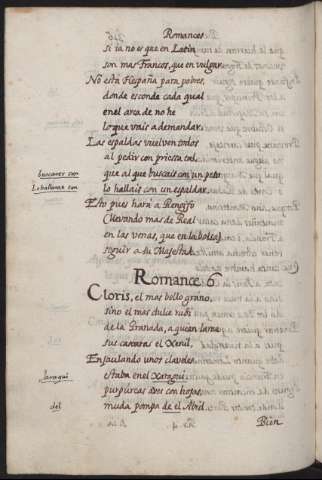 Romances
Si ia no es que en Latin
son mas Francos, que en vulgar.
No està Hespaña para pobres,
donde esconde cada qual
en el arca de no he
lo que vais a demandar.
Las espaldas vuelven todos
al pedir con priessa tal,
que al que buscais con un peto
lo hallais con un espaldar.
Esto pues harà a Rengifo
llevando mas de Real
en las venas, que en la bolsa,
seguir a su Majestad.
buscareis con
Lo hallareis con
Romance 6
Cloris, el mas bello grano,
sino el mas dulce rubi
de la Granada, a quien lame
sus cascaras el Xenil,
Enjaulando unos claveles
estaba en el Xaragui,
purpureas aves con hojas,
muda pompa de el Abril.
Jaragui
del
Bien